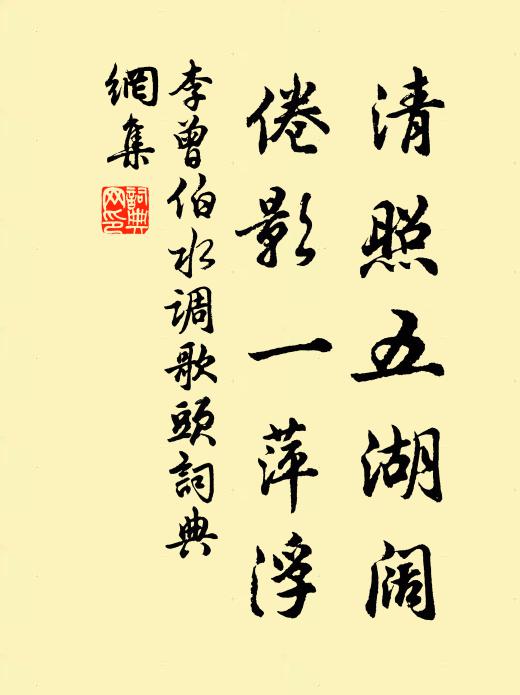 清照五湖阔
倦影一萍浮
李曾伯水调歌头詞典
網集
詞典
网印